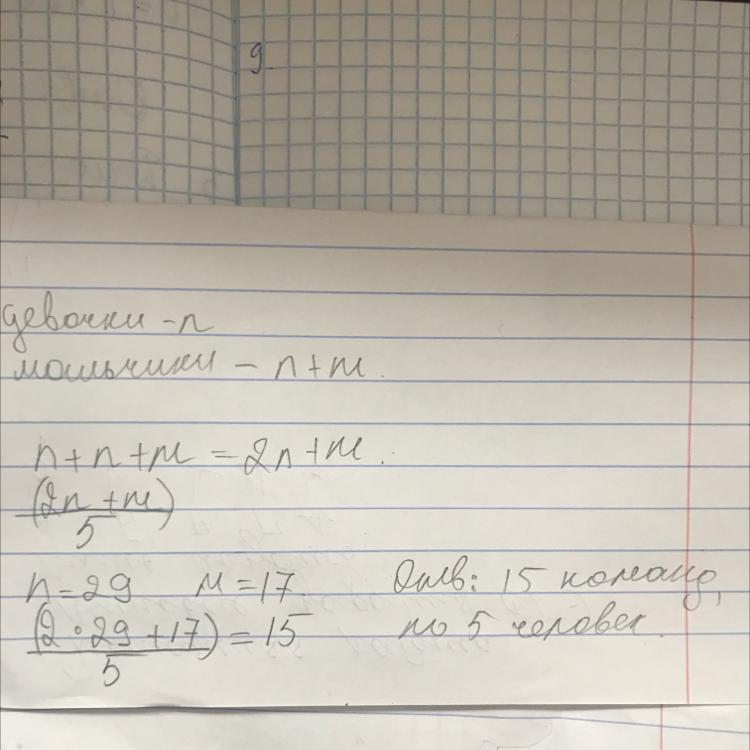 9
девочки - n
мальчики - n + m.
n + n + m = 2n + m.
(2n + m)
5
n = 29 м = 17. Отв: 15 команд,
(2 · 29 + 17) = 15 по 5 человек.
5